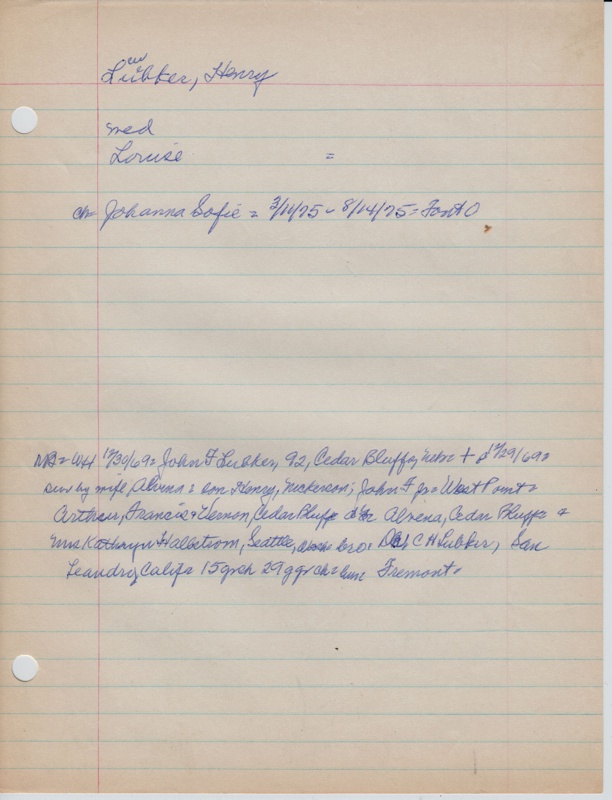 Lübker, Henry
med
Louise =
ch= Johanna Sofie = 3/11/75 - 8/14/75 = Font O
NB= WH 12/30/69= John F Lubker, 92, Cedar Bluffs, Nebr + d 12/29/69=
surv by wife, Alvena = son Henry, Nickerson; John F jr= West Point=
Arthur, Francis & Vernon, Cedar Bluffs Alvena, Cedar Bluffs &
Mrs Kathryn Halbstrom, Seattle, bro: C H Lubker, San
Leandro, Calif= 15 grch 29 ggrch= Fremont=